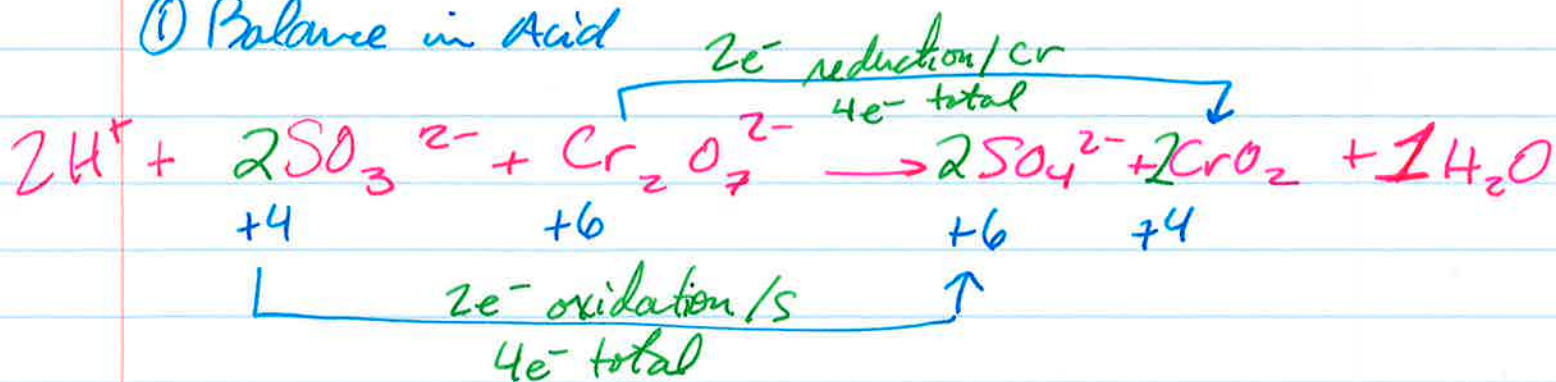 ① Balance in Acid
2e⁻ reduction/Cr
4e⁻ total
2H⁺ + 2SO₃²⁻ + Cr₂O₇²⁻ → 2SO₄²⁻ + 2CrO₂ + 1H₂O
+4 +6 +6 +4
2e⁻ oxidation/S
4e⁻ total